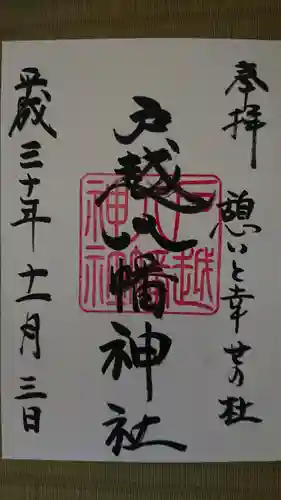 奉拝
憩いと幸せの杜
戸越八幡神社
戸越八幡神社
平成三十年十一月三日